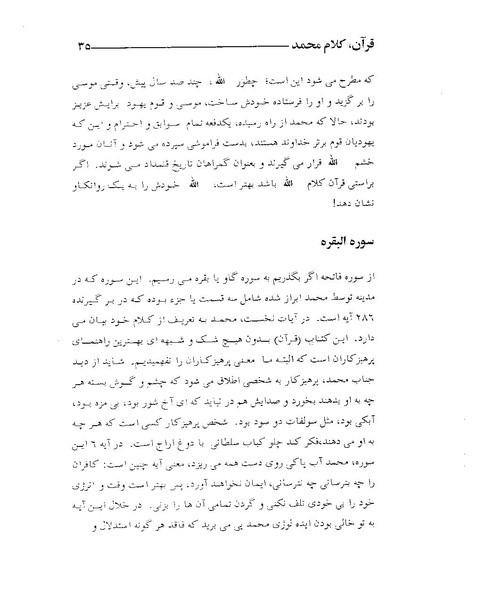 قرآن، کلام محمد ۳۵
که مطرح می شود این است؛ چطور الله، چند صد سال پیش، وقتی موسی
را بر گزید و او را فرستاده خودش ساخت، موسی و قوم یهود برایش عزیز
بودند، حالا که محمد از راه رسیده، یکدفعه تمام سوابق و احترام و این که
یهودیان قوم برتر خداوند هستند، بدست فراموشی سپرده می شود و آنان مورد
خشم الله قرار می گیرند و بعنوان گمراهان تاریخ قلمداد می شوند. اگر
براستی قرآن کلام الله باشد بهتر است، الله خودش را به یک روانکاو
نشان دهد!
سوره البقره
از سوره فاتحه اگر بگذریم به سوره گاو یا بقره می رسیم. این سوره که در
مدینه توسط محمد ابراز شده شامل سه قسمت یا جزء بوده که در بر گیرنده
۲۸۶ آیه است. در آیات نخست، محمد به تعریف از کلام خود بیان می
دارد. این کتاب (قرآن) بدون هیچ شک و شبهه ای بهترین راهنمای
پرهیزکاران است که البته ما معنی پرهیزکاران را نفهمیدیم. شاید از دید
جناب محمد، پرهیزکار به شخصی اطلاق می شود که چشم و گوش بسته هر
چه به او بدهند بخورد و صدایش هم در نیاید که ای آخ شور بود، بی مزه بود،
آبکی بود، مثل سولفات دو سود بود. شخص پرهیزکار کسی است که هر چه
به او می دهند،فکر کند چلو کباب سلطانی با دوغ اراج است. در آیه ۶ این
سوره، محمد آب پاکی روی دست همه می ریزد، معنی آیه چنین است: کافران
را چه بترسانی چه نترسانی، ایمان نخواهند آورد، پس بهتر است وقت و انرژی
خود را بی خودی تلف نکنی و گردن تمامی آن ها را بزنی. در خلال این آیه
به تو خالی بودن ایده لوژی محمد پی می برید که فاقد هر گونه استدلال و